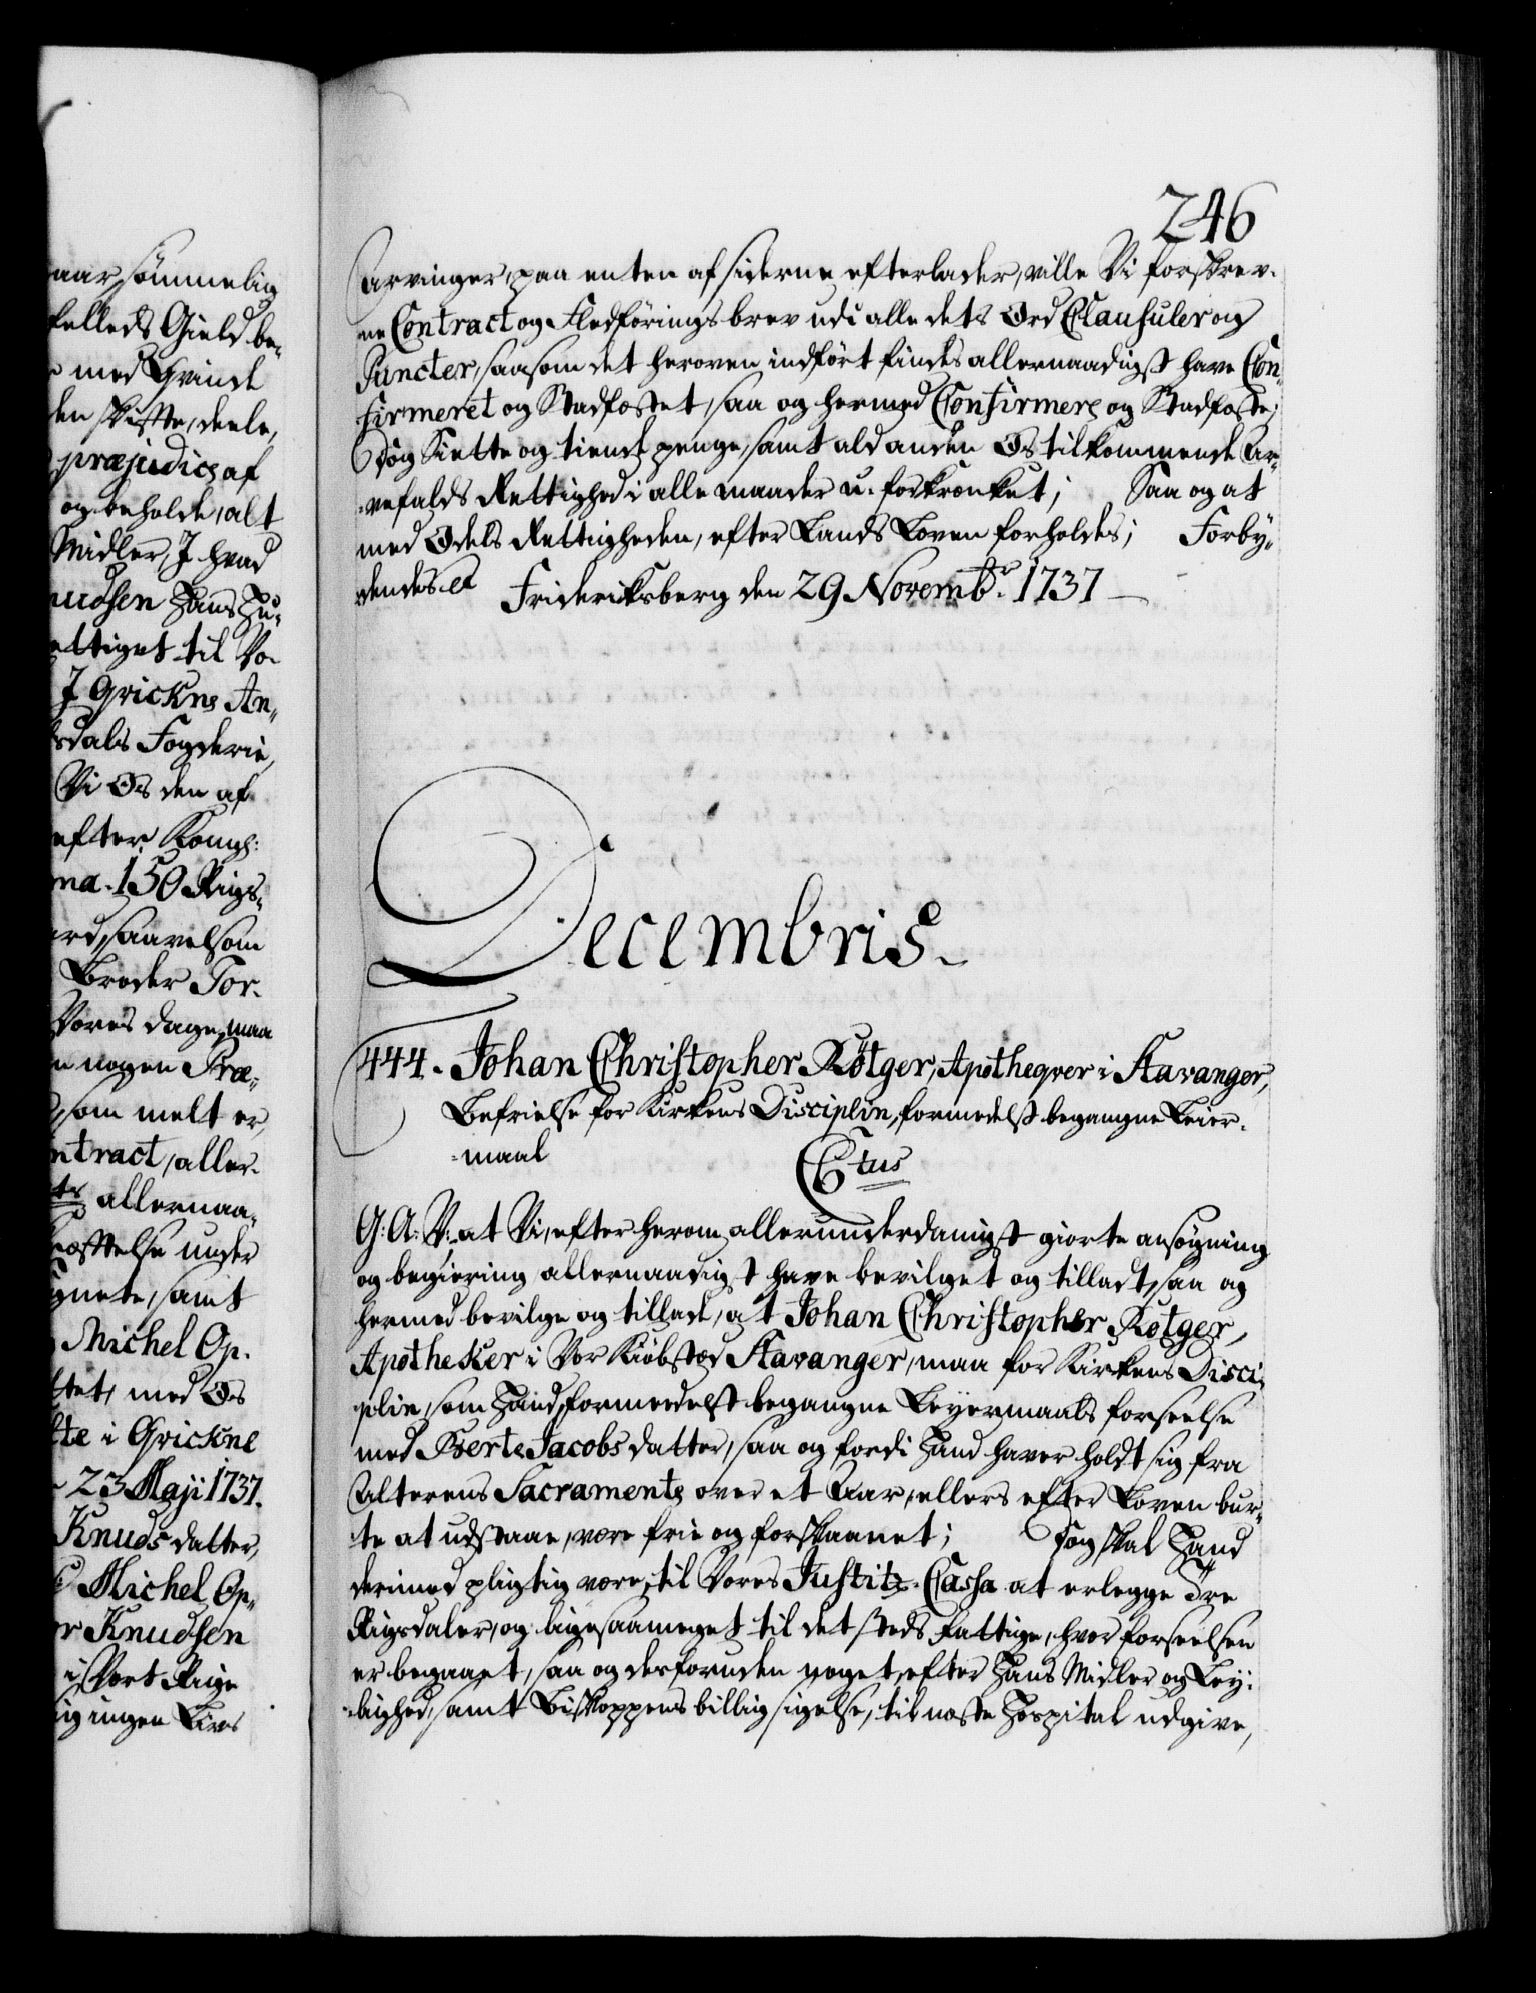 246
Arvinger, paa enten af siderne efterlader, ville Vi forskrev-
ne Contract og Fledførings brev udi alle dets Ord Clausuler og
Puncter, saasom det heroven indført findes allernaadigst have Con-
firmeret og Stadfæstet, saa og hermed Confirmere og Stadfæste;
Dog Siette og tiende penge, samt ald anden Os tilkommende Ar-
vefalds Rettighed i alle maader u-forkrænket; Saa og at
med Odels Rettigheden, efter Lands Loven forholdes; Forby-
dendes &c Friderichsberg den 29 Novembr. 1737
Decembris.
444. Johan Christopher Rötger, Apotheqver i Stavanger,
Befrielse for Kirkens Disciplin, formedelst begangne Leier-
maal
C6tus
G: A: V: at Vi, efter herom allerunderdanigst giorte ansøgning
og begiering allernaadigst have bevilget og tilladt, saa og
hermed bevilge og tillade, at Johan Christopher Rötger,
Apotheker i Vor Kiøbstæd Stavanger, maa for Kirkens Disci-
plin, som Hand, formedelst begangne Leyermaals forseelse
med Berte Jacobs datter, saa og fordi Hand haver holdt sig fra
Alterens Sacramente over et Aar, ellers efter Loven bur-
te at udstaae, være frie og forskaanet; Dog skal Hand
derimod pligtig være, til Vores Justitz-Cassa at erlegge Tre
Rigsdaler, og ligesaameget til det steds Fattige, hvor forseelsen
er begaaet, saa og desforuden noget, efter Hans Midler og Ley-
lighed, samt Biskoppens billig sigelse, til næste Hospital udgive,
aar sømmelig
felleds Gield be-
med Qvinde
den skifte, deele,
præjudice af
og beholde, alt
Midler, J hvad
nudsen Hans Hu-
ettiget til Vo-
J Grickne An-
sdals Fogderie,
Vi Os den af
efter Kongl:
na. 150 Rigs-
ard, saavelsom
Broder Tor-
Vores dage, maa
n nogen Præ-
som melt er,
ntract, aller-
ts allernaa-
fæstelse under
gnete, samt
Michel Op-
ttet, med Os
te i Grickne
23 Maji 1737.
Knuds datter,
Michel Op-
r Knudsen
i Vort Rige
ig ingen Livs